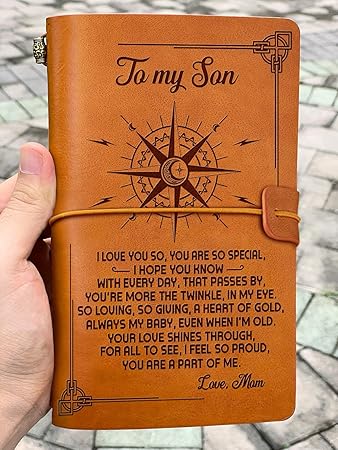 To my Son
I LOVE YOU SO, YOU ARE SO SPECIAL,
I HOPE YOU KNOW
WITH EVERY DAY, THAT PASSES BY,
YOU'RE MORE THE TWINKLE, IN MY EYE.
SO LOVING, SO GIVING, A HEART OF GOLD,
ALWAYS MY BABY, EVEN WHEN I'M OLD.
YOUR LOVE SHINES THROUGH,
FOR ALL TO SEE, I FEEL SO PROUD,
YOU ARE A PART OF ME.
Love, Mom